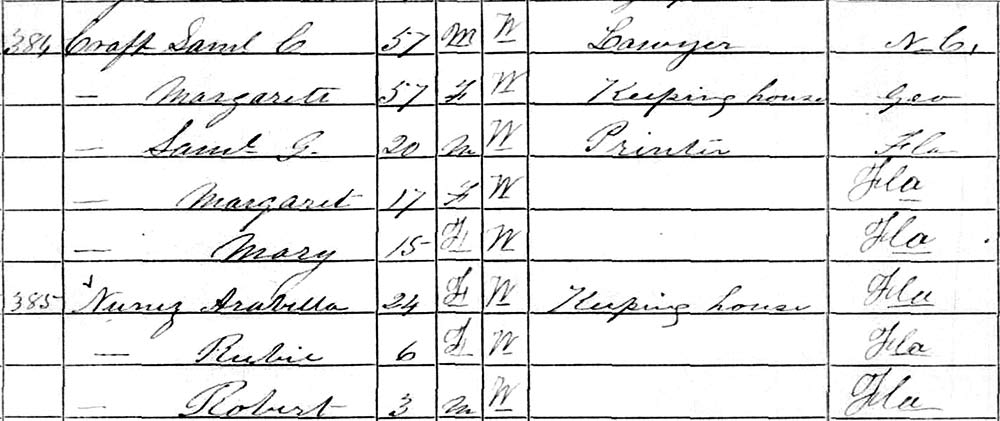 384 Craft Saml C 57 M W Lawyer N. C.
— Margarett 57 F W Keeping house Geo
— Saml G. 20 M W Printer Fla
— Margaret 17 F W Fla
— Mary 15 F W Fla
385 Nunez Arabella 24 F W Keeping house Fla
— Rubie 6 F W Fla
— Robert 3 M W Fla